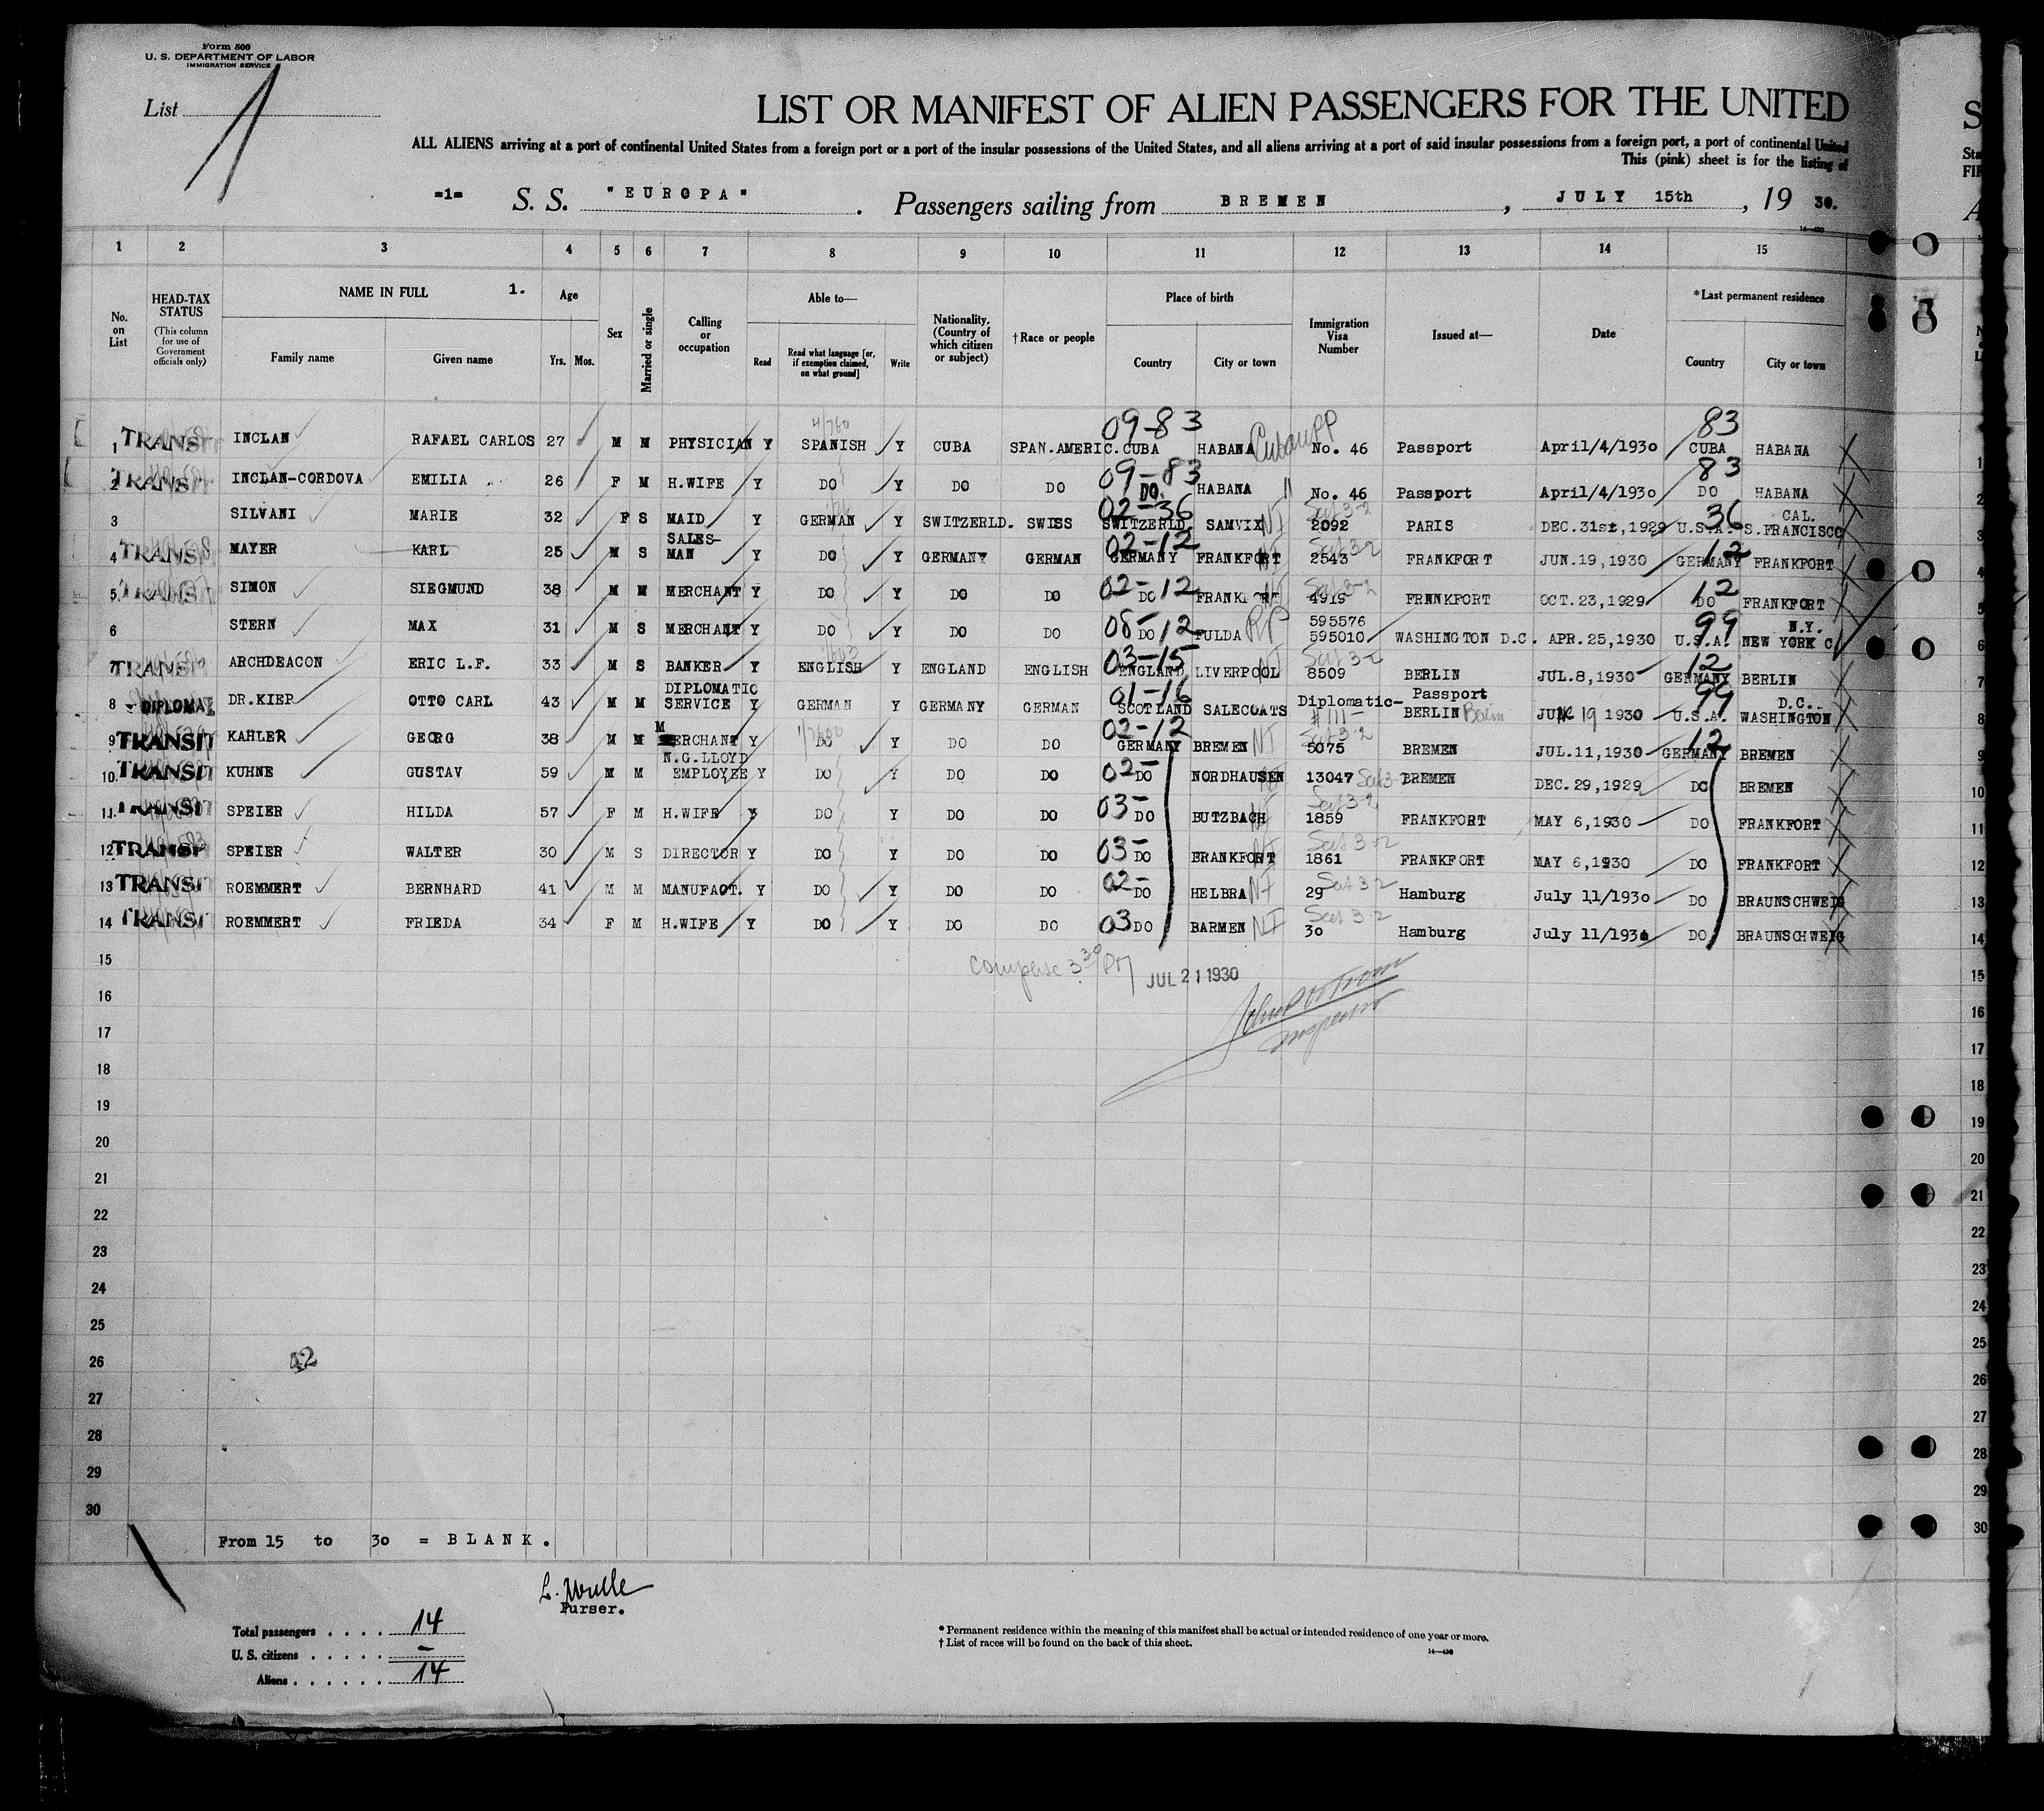 Form 500
U. S. DEPARTMENT OF LABOR
IMMIGRATION SERVICE
List 1
LIST OR MANIFEST OF ALIEN PASSENGERS FOR THE UNITED
ALL ALIENS arriving at a port of continental United States from a foreign port or a port of the insular possessions of the United States, and all aliens arriving at a port of said insular possessions from a foreign port, a port of continental United
This (pink) sheet is for the listing of
=1= S. S. "EUROPA". Passengers sailing from BREMEN, JULY 15th, 19 30.
1 2 3 4 5 6 7 8 9 10 11 12 13 14 15
No. on List
HEAD-TAX STATUS (This column for use of Government officials only)
NAME IN FULL 1. Family name Given name
Age Yrs. Mos.
Sex
Married or single
Calling or occupation
Able to— Read Read what language [or, if exemption claimed, on what ground] Write
Nationality. (Country of which citizen or subject)
†Race or people
Place of birth Country City or town
Immigration Visa Number
Issued at—
Date
*Last permanent residence Country City or town
1 TRANSIT INCLAN RAFAEL CARLOS 27 M M PHYSICIAN Y SPANISH Y CUBA SPAN.AMERIC. 09-83 CUBA HABANA Cuban PP No. 46 Passport April/4/1930 83 CUBA HABANA
2 TRANSIT INCLAN-CORDOVA EMILIA 26 F M H.WIFE Y DO Y DO DO 09-83 DO. HABANA " No. 46 Passport April/4/1930 83 DO HABANA
3 SILVANI MARIE 32 F S MAID Y GERMAN Y SWITZERLD. SWISS 02-36 SWITZERLD. SAMVIX NI Sect 3-2 2092 PARIS DEC.31st,1929 36 U.S.A. CAL. S.FRANCISCO
4 TRANSIT MAYER KARL 25 M S SALES-MAN Y DO Y GERMANY GERMAN 02-12 GERMANY FRANKFORT Sect 3-2 2543 FRANKFORT JUN.19,1930 12 GERMANY FRANKFORT
5 TRANSIT SIMON SIEGMUND 38 M M MERCHANT Y DO Y DO DO 02-12 DO FRANKFORT Sect 3-2 4919 FRANKFORT OCT.23,1929 12 DO FRANKFORT
6 STERN MAX 31 M S MERCHANT Y DO Y DO DO 08-12 DO FULDA RP 595576 595010 WASHINGTON D.C. APR.25,1930 99 U.S.A. N.Y. NEW YORK C.
7 TRANSIT ARCHDEACON ERIC L.F. 33 M S BANKER Y ENGLISH Y ENGLAND ENGLISH 03-15 ENGLAND LIVERPOOL NI Sect 3-2 8509 BERLIN JUL.8,1930 12 GERMANY BERLIN
8 DIPLOMAT DR.KIEP OTTO CARL 43 M M DIPLOMATIC SERVICE Y GERMAN Y GERMANY GERMAN 01-16 SCOTLAND SALECOATS Diplomatic-Passport #111- BERLIN JUN 19 1930 99 U.S.A. D.C. WASHINGTON
9 TRANSIT KAHLER GEORG 38 M M MERCHANT Y DO Y DO DO 02-12 GERMANY BREMEN NI Sect 3-2 5075 BREMEN JUL.11,1930 12 GERMANY BREMEN
10. TRANSIT KUHNE GUSTAV 59 M M N.G.LLOYD EMPLOYEE Y DO Y DO DO 02- DO NORDHAUSEN 13047 BREMEN DEC.29,1929 DO BREMEN
11. TRANSIT SPEIER HILDA 57 F M H.WIFE Y DO Y DO DO 03- DO BUTZBACH Sect 3-2 1859 FRANKFORT MAY 6,1930 DO FRANKFORT
12 TRANSIT SPEIER WALTER 30 M S DIRECTOR Y DO Y DO DO 03- DO FRANKFORT Sect 3-2 1861 FRANKFORT MAY 6,1930 DO FRANKFORT
13 TRANSIT ROEMMERT BERNHARD 41 M M MANUFACT. Y DO Y DO DO 02- DO HELBRA NI Sect 3-2 29 Hamburg July 11/1930 DO BRAUNSCHWEIG
14 TRANSIT ROEMMERT FRIEDA 34 F M H.WIFE Y DO Y DO DO 03 DO BARMEN NI Sect 3-2 30 Hamburg July 11/1930 DO BRAUNSCHWEIG
15 Complete 3 30 PM JUL 21 1930
16
17 Inspector
18
19
20
21
22
23
24
25
26 42
27
28
29
30
From 15 to 30 = BLANK.
Purser.
Total passengers . . . . 14
U. S. citizens . . . . . –
Aliens . . . . . . 14
* Permanent residence within the meaning of this manifest shall be actual or intended residence of one year or more.
† List of races will be found on the back of this sheet.
14—430